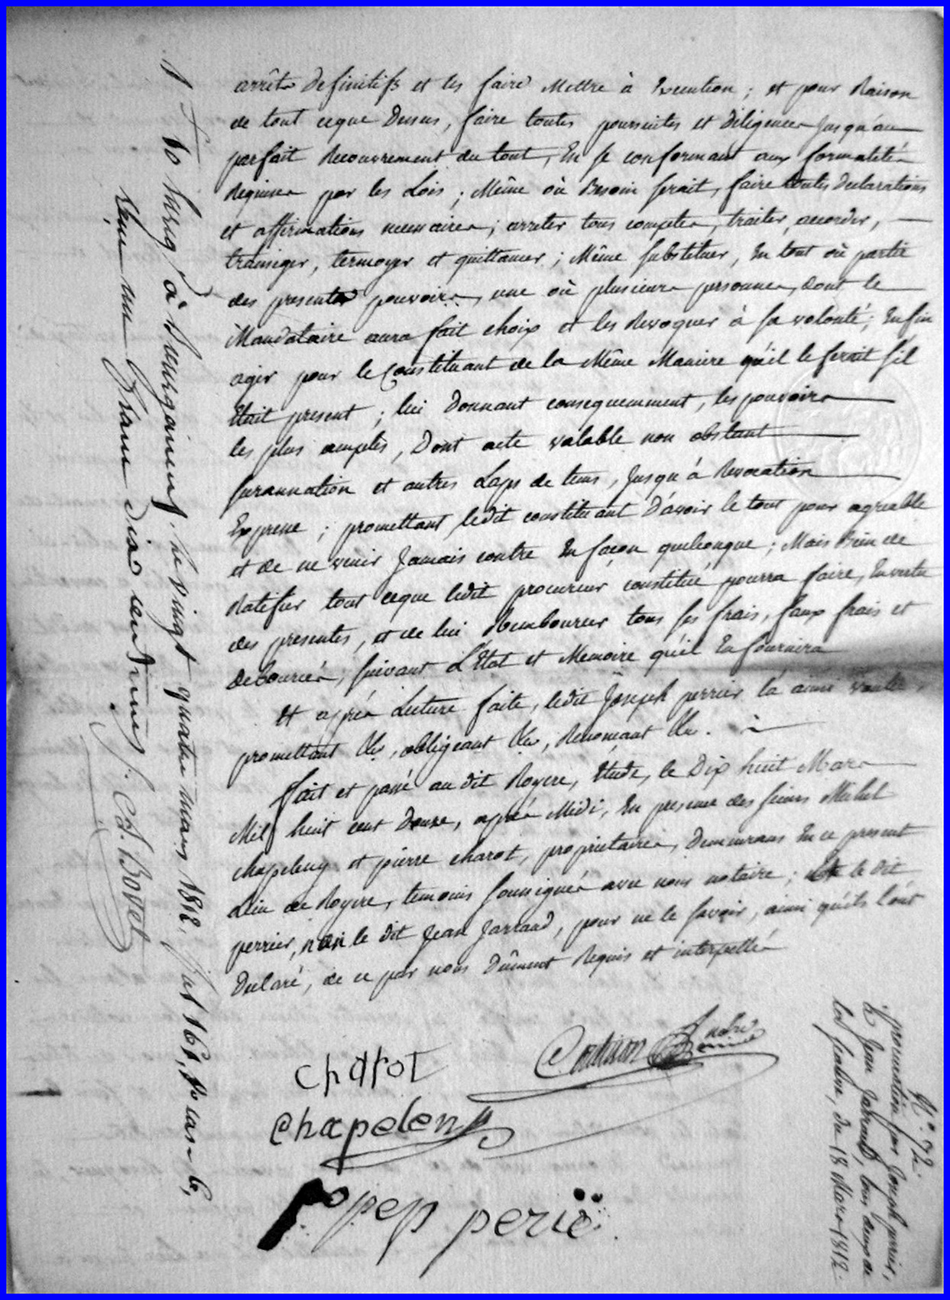 arrêts definitifs et les faire Mettre à Execution ; et pour Raison
de tout ceque Dessus, faire toutes poursuites et diligences Jusqu'au
parfait Recouvrement du tout, En se conformant aux formalités
Requises par les Lois ; Même où Besoin serait, faire toutes Declarations
et affirmations necessaires ; arreter tous comptes, traiter, accorder,
transiger, termoyer et quittancer ; Même substituer, En tout où partie
des presents pouvoirs, une où plusieurs personnes, dont le
Mandataire aura fait choix et les Revoquer à sa volonté ; Enfin
agir pour le Constituant de la Même Maniere qu'il le ferait s'il
Etait present ; lui Donnant consequemment, les pouvoirs
les plus amples, Dont acte valable non obstant
surannation et autres Laps de tems, Jusqu'à Revocation
Expresse ; promettant, ledit constituant D'avoir le tout pour agreable
et de ne venir Jamais contre En façon quelconque ; Mais Bien de
Ratifier tout ceque ledit procureur constitué pourra faire, En vertu
des presentes, et de lui Rembourser tous ses frais, faux frais et
debourcés, suivant L'Etat et Memoire qu'il En fournira
Et après Lecture faite, ledit Joseph perrier l'a ainsi voulu,
promettant &c, obligeant &c, Renoncant &c.
fait et passé au dit Royere, Etude, le Dix huit Mars
Mil huit cent douze, après Midi, En presence des sieurs Michel
chapeleng et pierre charot, proprietaires, demeurans En ce present
Lieu de Royere, temoins soussignés avec nous notaire ; Et le dit
perrier, non le dit Jean Jarraud, pour ne le savoir, ainsi qu'ils l'ont
Declaré, de ce par nous Dûment Requis et interpellé
chatot
chapeleng
pep perie
Enreg à Bourganeuf, le vingt quatre mars 1812
Reçu un franc dix centimes
N°. 72.
procuration par Joseph perrier,
à Jean Jarraud, tous deux de
du 18 Mars 1812.